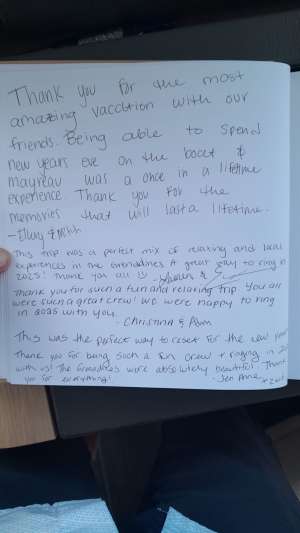 Thank you for the most
amazing vacation with our
friends. Being able to spend
new years eve on the boat &
mayreau was a once in a lifetime
experience Thank you for the
memories that will last a lifetime.
This trip was a perfect mix of relaxing and local
experiences in the Grenadines. A great way to ring in
2025! Thank you all!!
Thank you for such a fun and relaxing trip. You all
were such a great crew! We were happy to ring
in 2025 with you.
- Christina & Adam
This was the perfect way to reset for the new year
Thank you for being such a fun crew + ringing in
with us! The Grenadines were absolutely beautiful. Thank
you for everything! - Jen Anne